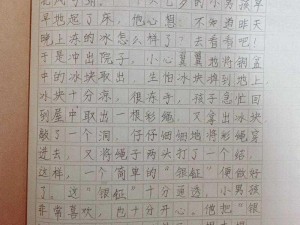 早地起了床，他心想：不知道昨天
晚上冻的冰怎么样了？去看看吧！
于是冲出院子，小心翼翼地将钢盆
中的冰块取出，生怕冰块掉到地上
冰块十分凉，很冻手，孩子急忙回
到屋中取出一根彩绳，又拿出冰块
敲了一个洞，仔仔细细地将彩绳穿
进去，又将绳子两头打了一个结，
这样，一个简单的“银钲”便做好
了。这“银钲”十分通透，小男孩
非常喜欢，也十分开心。他把“银